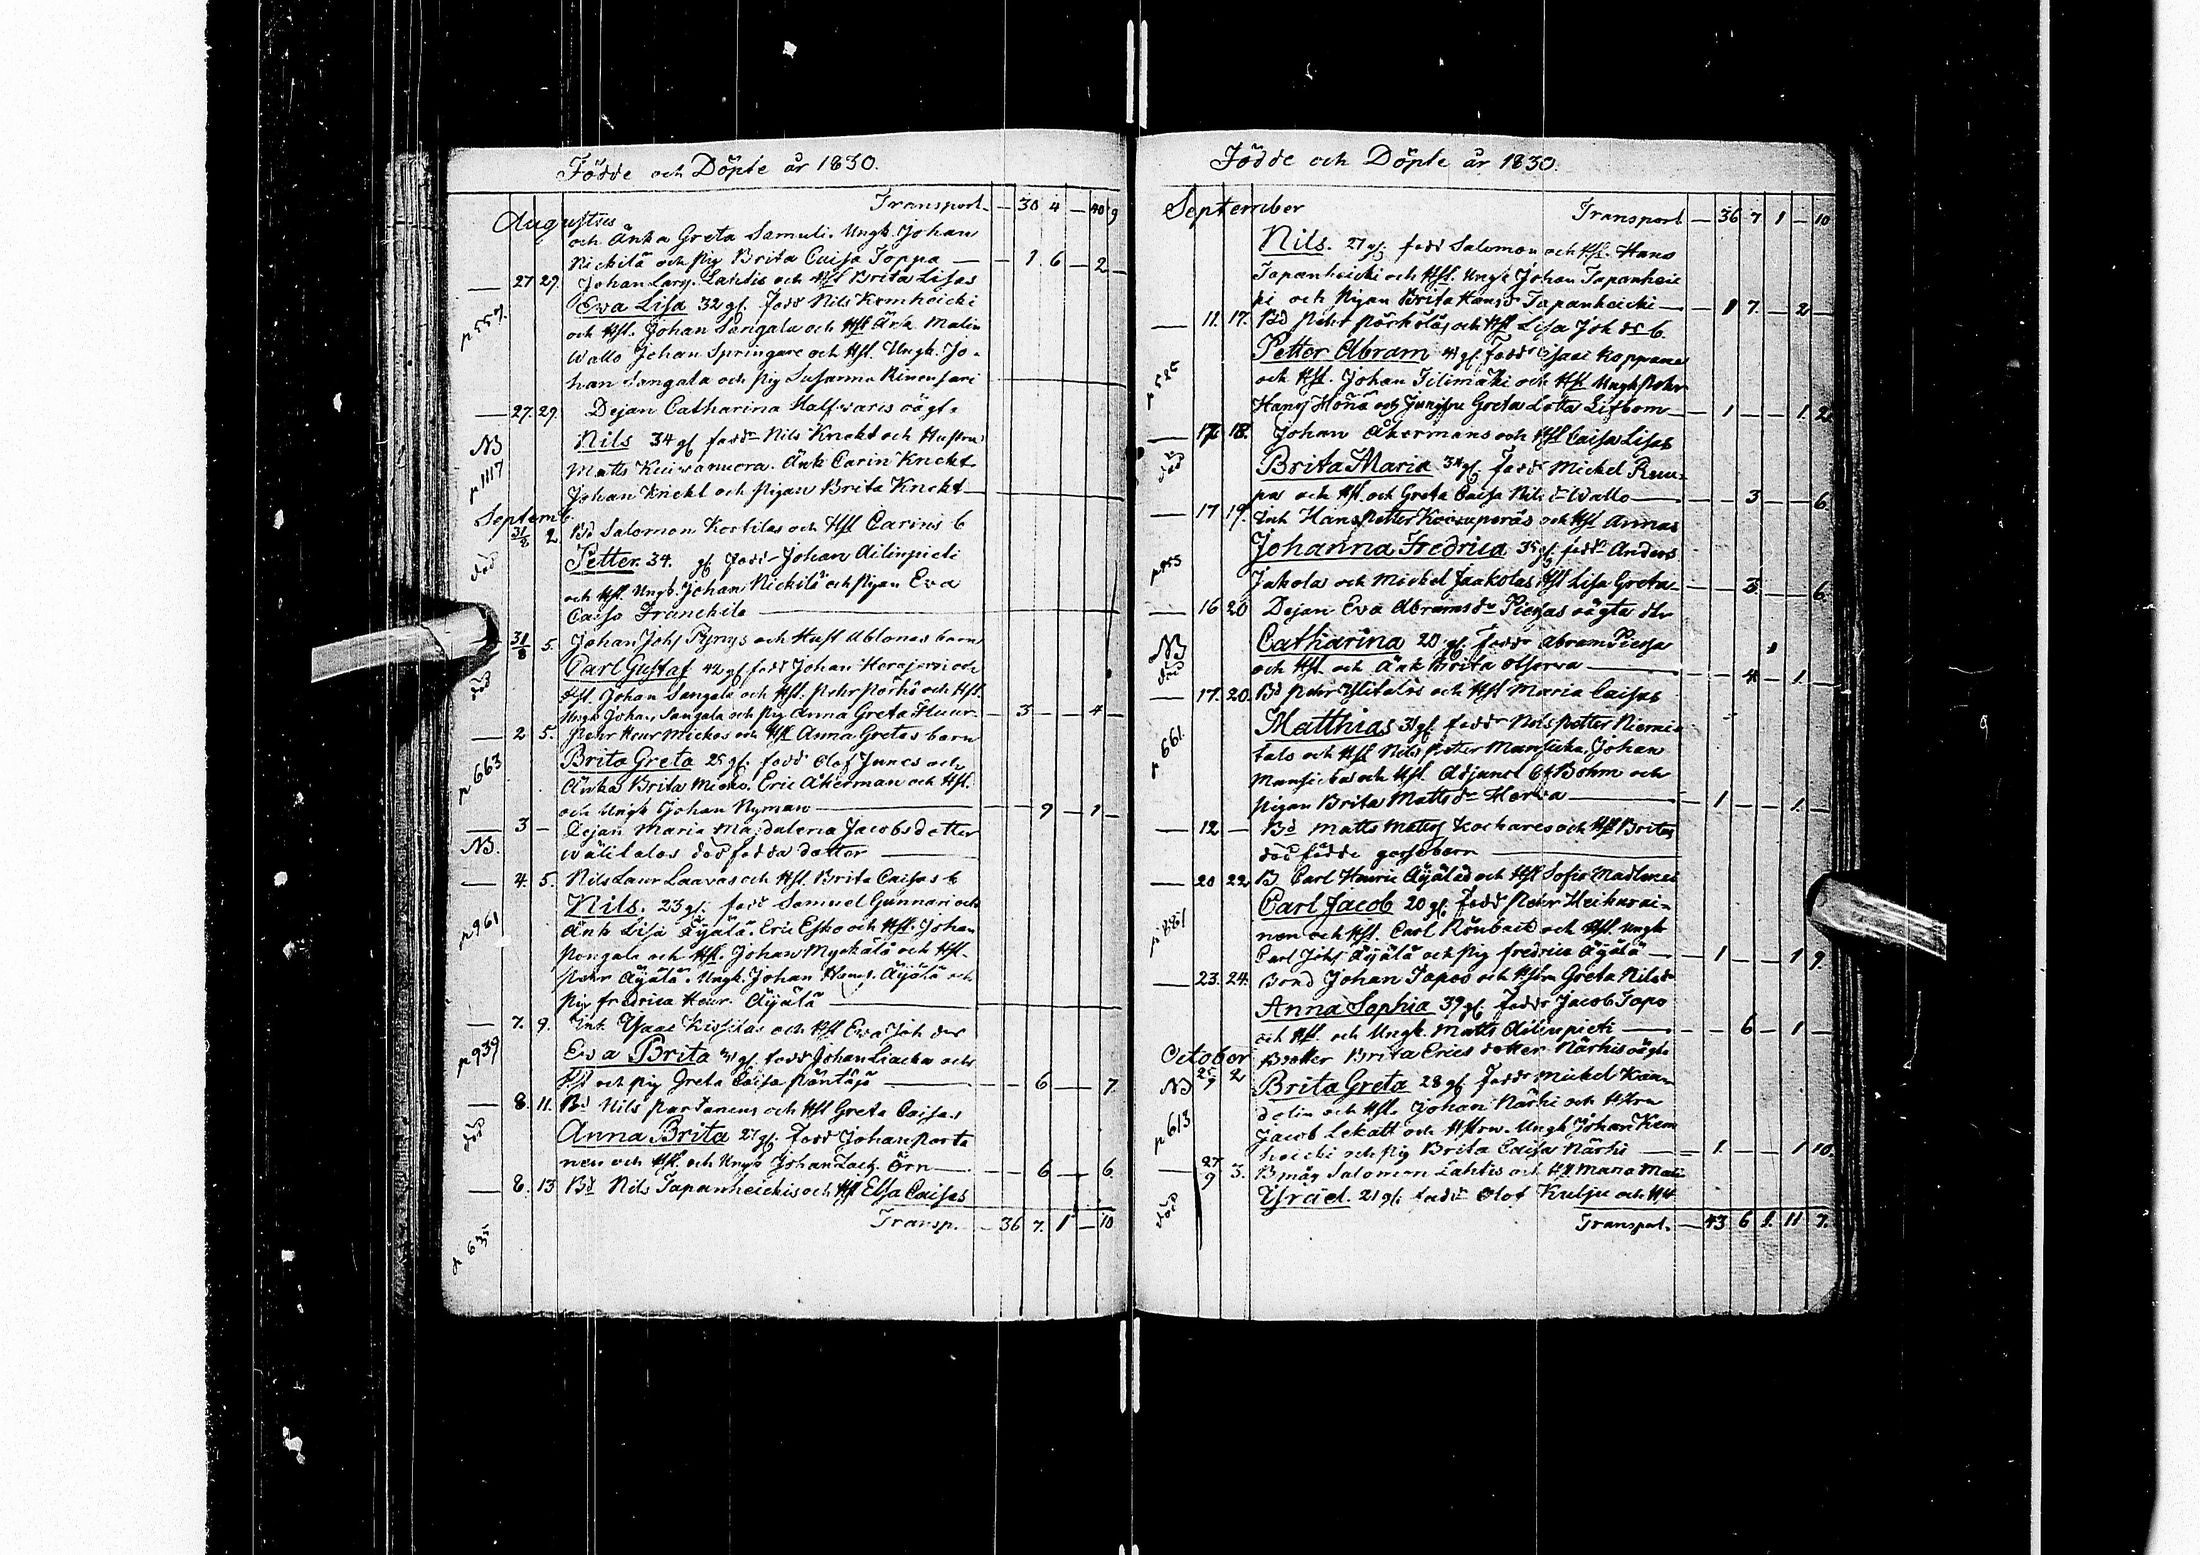 Födde och Döpte år 1830.
Augustus Transport. — 30 4 — 40 9
och Änka Greta Samuli. Ungk. Johan
Nickilä och Pig Brita Caisa Toppa — — 1 6 — 2 —
— 27 29. Johan Lars. Lahtis och Hst Brita Lisas
p 557. Ewa Lisa 32 gl. fadd Nils Kemheicki
och Hst. Johan Sangala och Hst Änk Malin
Wallo Johan Springare och Hst. Ungk. Jo-
han Sangala och Pig Susanna
— 27. 29. Dejan Catharina Halfwaris oägt.
NB Nils 34 gl faddr Nils Knekt och Hustru
p 1117 Matts Kuiwanuora. Änk Carin Knekt
Johan Knekt och Pigan Brita Knekt —
Septemb.
31/8 2. Bd Salomon Kortilas och Hst Carins b
död Petter. 34. gl. fadd Johan Ailinpieti
och Hst. Ungk. Johan Nickilä och Pigan Eva
Caisa Franckila —
31/8 5. Johan Johs och Hust Ablonas barn
död Carl Gustaf 42 gl fadd Johan Herajervi och
Hst. Johan Sangala och Hst. Pehr Pörhö och Hst.
Ungk Johan Sangala och Pig Anna Greta Huur — 3 — — 4 —
— 2 5. Pehr Henr Mickos och Hst Anna Gretas barn
p 663 Brita Greta 25 gl. fadd Olof Junes och
Änka Brita Micko. Eric Åkerman och Hst.
och Ungk Johan Nyman — — 9 — 1 —
— 3 — Dejan Maria Magdalena Jacobsdotter
NB. Wälitalos dödfödda dotter —
— 4. 5. Nils Laur Laavas och Hst. Brita Caisas b
p 961 Nils. 23 gl. fadd Samuel Gunnari och
Änk Lisa Äÿälä. Eric Esko och Hst. Johan
Pongala och Hst. Johan Myckälä och Hst.
Pehr Äÿälä. Ungk. Johan Hans. Äÿälä och
Pig fredrica Henr. Äÿälä —
— 7. 9. Inh. Ysaac Kivilas och Hst Eva Joh der
p 939 Eva Brita 31 gl. fadd Johan Liacka och
Hst och Pig Greta Caisa Päntäjä — — 6 — — 7.
— 8. 11. Bd Nils Partanens och Hst Greta Caisas
död Anna Brita 27 gl. fadd Johan Porta
nen och Hst. och Ungk Johan Zach. Örn — — 6 — — 6.
— 8. 13 Bd Nils Tapanheickis och Hst Elsa Caisas
p 635 Transp. — 36 7. 1 — 10
Födde och Döpte år 1830.
September Transport — 36 7 1 — 10
Nils. 27 gl. fadd Salomon och Hst. Hans
Tapanheicki och Hst. Ungk Johan Tapanheic
ki och Pigan Brita Hansd. Tapanheicki — — 1 7. — 2 —
— 11. 17. Bd Pehr Pörhöläs och Hst Lisa Joh dr b.
p 525 Petter Abram 41 gl. faddr Isaac Koppana
och Hst. Johan Filimäki och Hst Ungk Pehr
Hans Honä och Jungfru Greta Lotta Lifbom — 1 — — 1. 2
— 17. 18. Johan Åkermans och Hst Caisa Lisas
död Brita Maria 34 gl. fadd Mickel Ruu-
pa och Hst. och Greta Caisa Nils dr Wallo — — 3 — — 6.
— 17 19. Inh Hans Petter och Hst Annas
p 953 Johanna Fredrica 35 gl. faddr Anders
Jakola och Mickel Jaakolas Hst Lisa Greta — — 3 — — 6.
— 16 20 Dejan Eva Abrams dr Piessas oägta dtr
NB Catharina 20 gl. faddr Abram Piessa
död och Hst. och Änk Brita — — 4 — 1. —
— 17. 20. Bd Pehr Ylitalos och Hst Maria Caisas
p 661. Matthias 31 gl. faddr Nils Petter Niemi-
talo och Hst Nils Petter Mansicka, Johan
Mansicka och Hst. Adjunct Bohm och
Pigan Brita Matts dr Herva — — 1 — — 1. —
— 12 — Bd Matts Matts Kochares och Hst Britas
död födde gossebarn —
— 20 22. B Carl Henric Äÿäläs och Hst Sofia Madlenas
Carl Jacob 20 gl. fadd Pehr Heikurai-
nen och Hst. Carl Rönback och Hst Ungk
Carl Johs Äÿälä och Pig fredrica Äÿälä — 1 — — 1 9.
— 23. 24. Bond Johan Tapos och Hstru Greta Nilsd
Anna Sophia 39 gl. faddr Jacob Tapo
och Hst. och Ungk. Matts Ailinpieti — — 6 — 1 —
October Bdotter Brita Erics dotter Närhis oägta
NB 25/9 2 Brita Greta 28 gl. faddr Mickel Kan-
p 613 dolin och Hst. Johan Närhi och Hstru
Jacob Lekatt och Hstru. Ungk Johan Kem
heicki och Pig Brita Caisa Närhi — 1. — — 1 10.
— 27/9 3. Bmåg Salomon Lahtis och Hst Maria
död Ysrael. 21 gl. faddr Olof Kulju och Hst
Transport. — 43 6 1. 11 7.